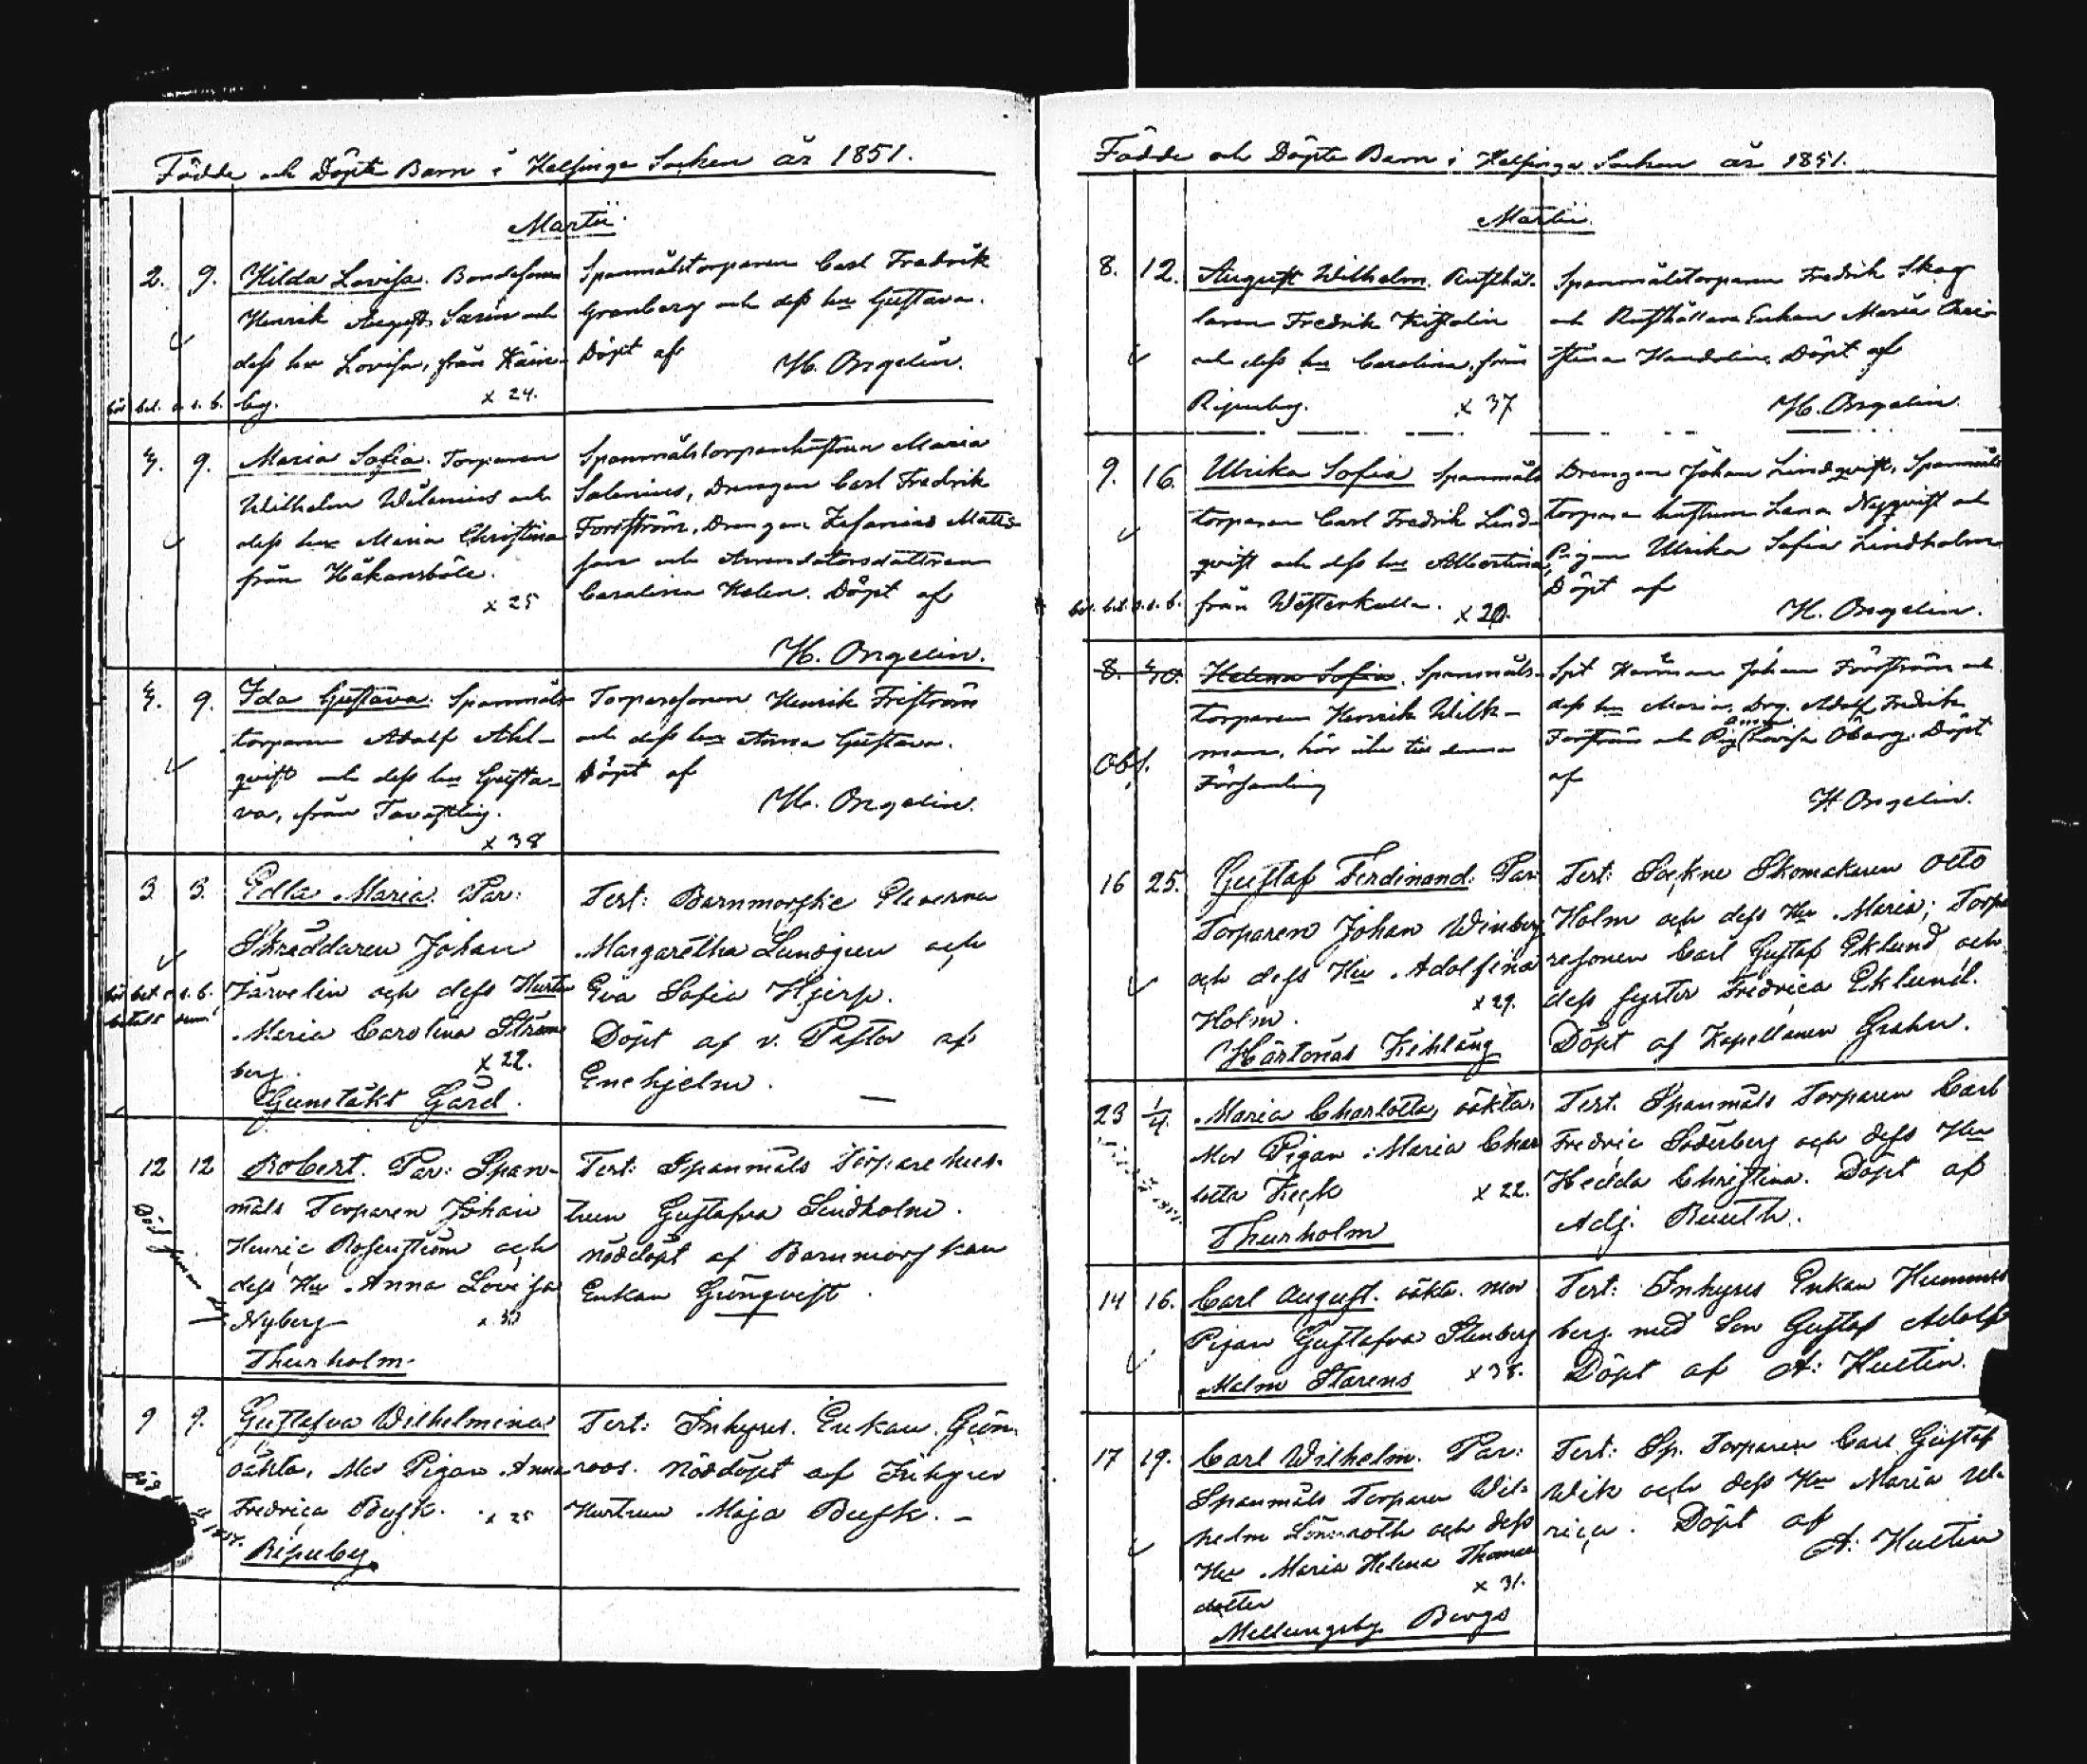 Födde och Döpte Barn i Helsinge Socken år 1851.
Martii
2. 9. Hilda Lovisa. Bondesonen
Henrik August Sarin och
dess hu Lovisa, från
by. x 24.
Spanmålstorparen Carl Fredrik
Granberg och dess hu Gustava.
Döpt af
H. Ongelin.
9. Maria Sofia. Torparen
Wilhelm Wilenius och
dess hu Maria Christina
från Håkansböle.
x 25
Spanmålstorparehustrun Maria
Salenius, Drengen Carl Fredrik
Forsström, Drengen Zefanias Matts-
son och Arrendatorsdottren
Carolina Holen. Döpt af
H. Ongelin.
9. Ida Gustava. Spanmåls-
torparen Adolf Ahl-
qvist och dess hu Gusta-
va, från Tavastby.
x 38
Torparesonen Henrik Friström
och dess hu Anna Gustava.
Döpt af
H. Ongelin.
3. 3. Edla Maria. Par:
Skräddaren Johan
Järvelin och dess Hustru
Maria Carolina Ström-
berg. x 22.
Gumtäkt Gård.
Test: Barnmorske Eleverna
Margaretha Lundgren och
Eva Sofia Hjerp.
Döpt af v. Pastor af
Enehjelm.
12 12 Robert. Par: Span-
måls Torparen Johan
Henric Rosenström och
dess Hu Anna Lovisa
Nyberg x 30
Thurholm.
Test: Spanmåls Torpare hus-
trun Gustafva Lindholm.
Nöddöpt af Barnmorskan
Enkan Grönqvist.
9 9. Gustafva Wilhelmina
oäkta, Mor Pigan Anna
Fredrica Busk. x 25
Ripuby.
Test: Inhyses Enkan Grön-
roos. Nöddöpt af Inhyses
Hustrun Maja Busk.
Födde och Döpte Barn i Helsinge Socken år 1851.
Martii
8. 12. August Wilhelm. Rusthål-
laren Fredrik
och dess hu Carolina, från
Ripuby. x 37
Spanmålstorparen Fredrik Skog
och Rusthållare Enkan Maria Chri-
stina Handolin. Döpt af
H. Ongelin.
9. 16. Ulrika Sofia Spanmåls
torparen Carl Fredrik Lind-
qvist och dess hu Albertina,
från Westerkulla. x 20.
Drengen Johan Lindqvist, Spanmåls
torpare hustrun Lena Nyqvist och
Pigan Ulrika Sofia Lindholm
Döpt af
H. Ongelin.
8. Helena Sofia. Spanmåls-
torparen Henrik Wilk-
man, hör icke till denna
Församling
Obs.
Johan Forsström och
dess hu Maria, Drg. Adolf Fredrik
Forsström och Pig. Anna Lovisa Öberg. Döpt
af
H Ongelin.
16 25. Gustaf Ferdinand. Par:
Torparen Johan Winberg
och dess Hu Adolfina
Holm. x 29.
Hertonäs Kiehläng
Test: Sockne Skomakaren Otto
Holm och dess Hu Maria; Torpa
resonen Carl Gustaf Eklund och
dess syster Fredrica Eklund.
Döpt af Kapellanen Grahn.
23 1/4. Maria Charlotta, oäkta.
Mor Pigan Maria Char
lotta Keck x 22.
Thurholm
Test. Spanmåls Torparen Carl
Fredric Söderberg och dess Hu
Hedda Christina. Döpt af
Adj. Ruuth.
14 16. Carl August. oäkta. mor
Pigan Gustafva Stenberg
Malm Storens x 38.
Test: Inhyses Enkan Hummel
berg med Son Gustaf Adolf
Döpt af A: Hultin.
17 19. Carl Wilhelm. Par:
Spanmåls Torparen Wil-
helm Lönnroth och dess
Hu Maria Helena Thomas
dotter x 31.
Mellungsby Bergs
Test: Sp. Torparen Carl Gustaf
Wik och dess Hu Maria Ul-
rica. Döpt af
A: Hultin